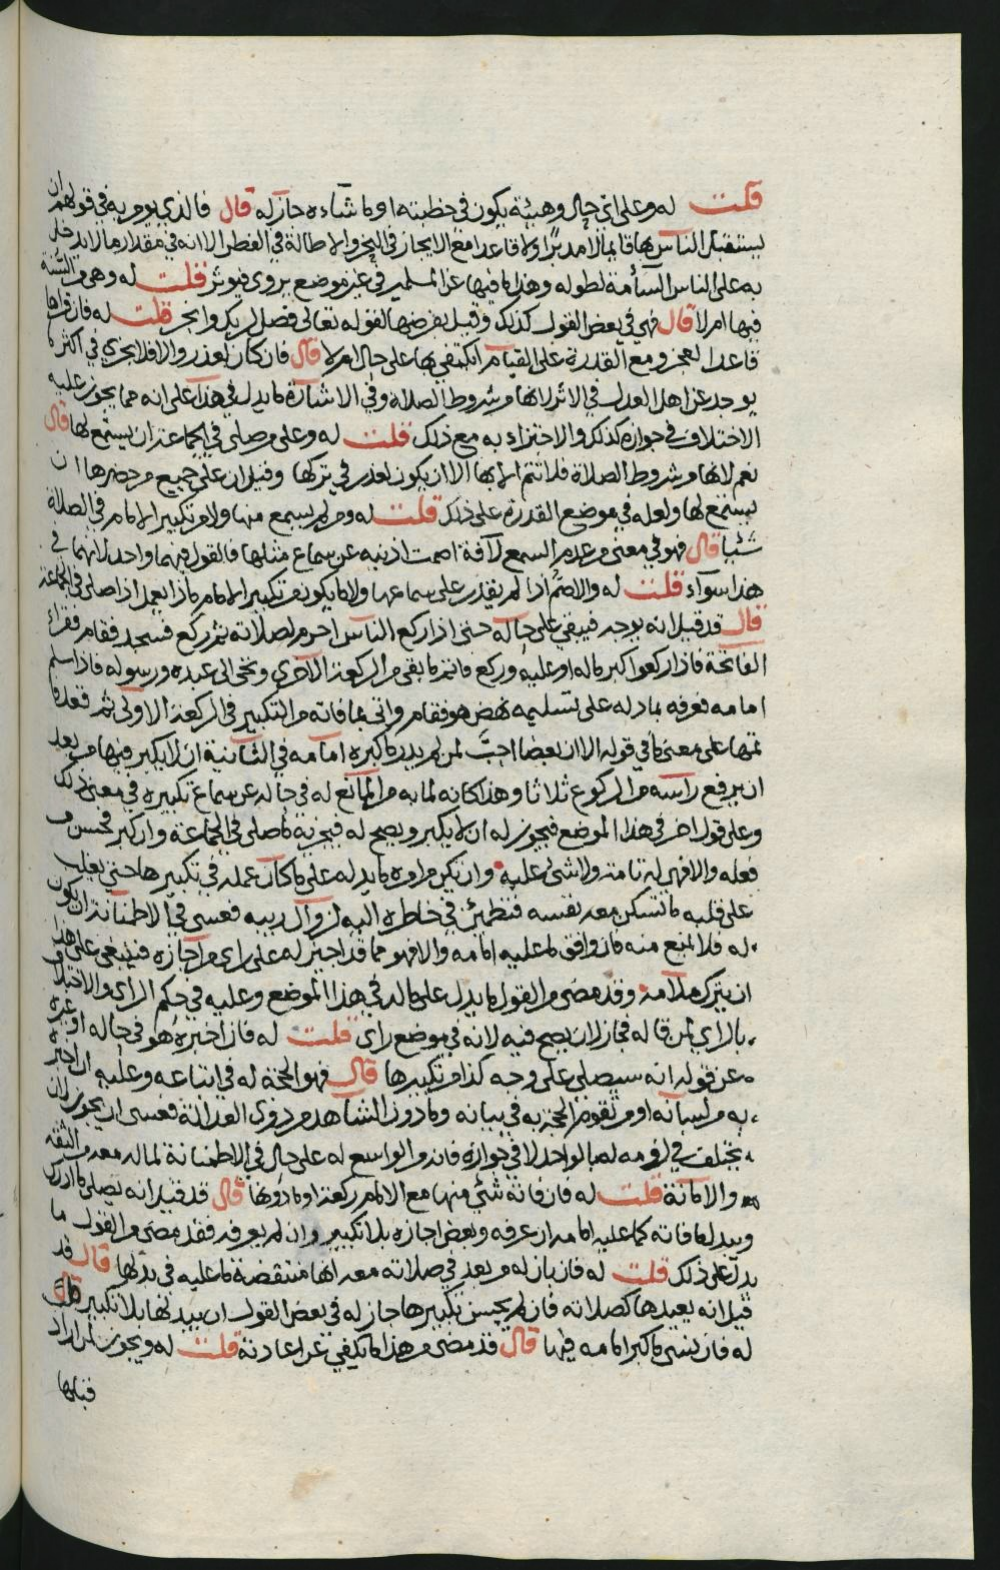 قلت له وعلى اي حال وهيئة يكون في خطبته او ما شاءه جاز له قال فالذي يومر به في قولهم ان
يستقبل الناس بها قايما لا مدبرًا ولا قاعدا مع الايجاز في النحر والاطالة في الفطر الا انه في مقدار ما لا يدخل
به على الناس السأمة لطوله وهذا ما فيها عن المسلمين في غير موضع يروى فيوثر قلت له وهي من السنة
فيها ام لا قال فهي في بعض القول كذلك وقيل بفرضها لقوله تعالى فصل لربك وانحر قلت له فان قراها
قاعدا لعجز ومع القدرة على القيام ايكتفي بها على حال ام لا قال فان كان لعذر والا فلا يجزي في اكثر ما
يوجد عن اهل العدل في الاثر لانها من شروط الصلاة وفي الاشارة ما يدل في هذا على انه مما يجوز عليه
الاختلاف في جوازه كذلك والاجتزاء به مع ذلك قلت له وعلى من صلى في الجماعة ان يستمع لها قال
نعم لانها من شروط الصلاة فلا تتم الا بها الا ان يكون لعذر في تركها وقيل ان على جميع من حضرها ان
يستمع لها ولعله في موضع القدرة على ذلك قلت له ومن لم يسمع منها ولا من تكبير الامام في الصلاة
شئيا قال فهو في معنى من عدم السمع لآفة اصمت اذنيه عن سماع مثلها فالقول فيهما واحد لانهما في
هذا سوآء قلت له والاصم اذا لم يقدر على سماعها ولا ما يكون من تكبير الامام ماذا يعمل اذا صلى في الجماعة
قال قد قيل انه يوجه فيبقى على حاله حتى اذا ركع الناس احرم لصلاته ثم ركع فسجد فقام فقراء
الفاتحة فاذا ركعوا كبر ما له او عليه وركع فاتم ما بقى من الركعة الاخرى وتحى الى عبده ورسوله فاذا سلم
امامه فعرفه بما دله على تسليمه نهض هو فقام واتى بما فاته من التكبير في الركعة الاولى ثم قعد فا
تمها على معنى ما في قوله الا ان بعضا احبَّ لمن لم يدر ما كبره امامه في الثانية ان لا يكبر فيها من بعد
ان يرفع راسه من الركوع ثلاثا وهذا كانه لما به من المانع له في حاله عن سماع تكبيره في معنى ذلك
وعلى قول اخر في هذا الموضع فيجوز له ان لا يكبر ويصح له فيجزيه ما صلى في الجماعة وان كبر فحسن من
فعله والا فهي له تامة ولا شئ عليه وان يكن من امره ما يدله على ما كان عمله في تكبيرها حتى يغلب
على قلبه ما تسكن معه نفسه فتطمئن في خاطره اليه لزوال ريبه فعسى في الاطمئانة ان يكون
له فلا يمنع منه فان وافق لما عليه امامه والا فهو مما قد اجيز له على راي من اجازه فينبغي على هذا
ان يترك ملامه وقد مضى من القول ما يدل على ما له في هذا الموضع وعليه في حكم الراى والاجتزاء
بالراي لمن قاله فجاز لان يصح فيه لانه في موضع راى قلت له فان اخبره هو في حاله او غيره
عن قوله انه سيصلي على وجه كذا من تكبيرها قال فهو الحجة له في اتباعه وعليه ان اخبره
به من لسانه او من تقوم الحجة به في بيانه وما دون الشاهد من ذوي العدالة فعسى ان يجوز لان
يختلف في لزومه لصبا لواحد لا في جوازه فانه والواسع له على حال في الاطمئانة لما له معه من الثقة
والامانة قلت له فان فاته شئي منها مع الامام ركعة او ما دونها قال قد قيل انه يصلي ما ادرك
ويبدل ما فاته كما عليه امامه ان عرفه وبعض اجازه بلا تكبير وان لم يعرفه فقد مضى من القول ما
يدل على ذلك قلت له فان بان له من بعد في صلاته معه انها منتقضة ما عليه في بدلها قال قد
قيل انه يعيدها كصلاته فان لم يحسن تكبيرها جاز له في بعض القول ان يبدلها بلا تكبير قلت
له فان نسي ما كبر امامه فيها قال قد مضى من هذا ما يكفي عن اعادته قلت له ويجوز لمن اراد
قتلها